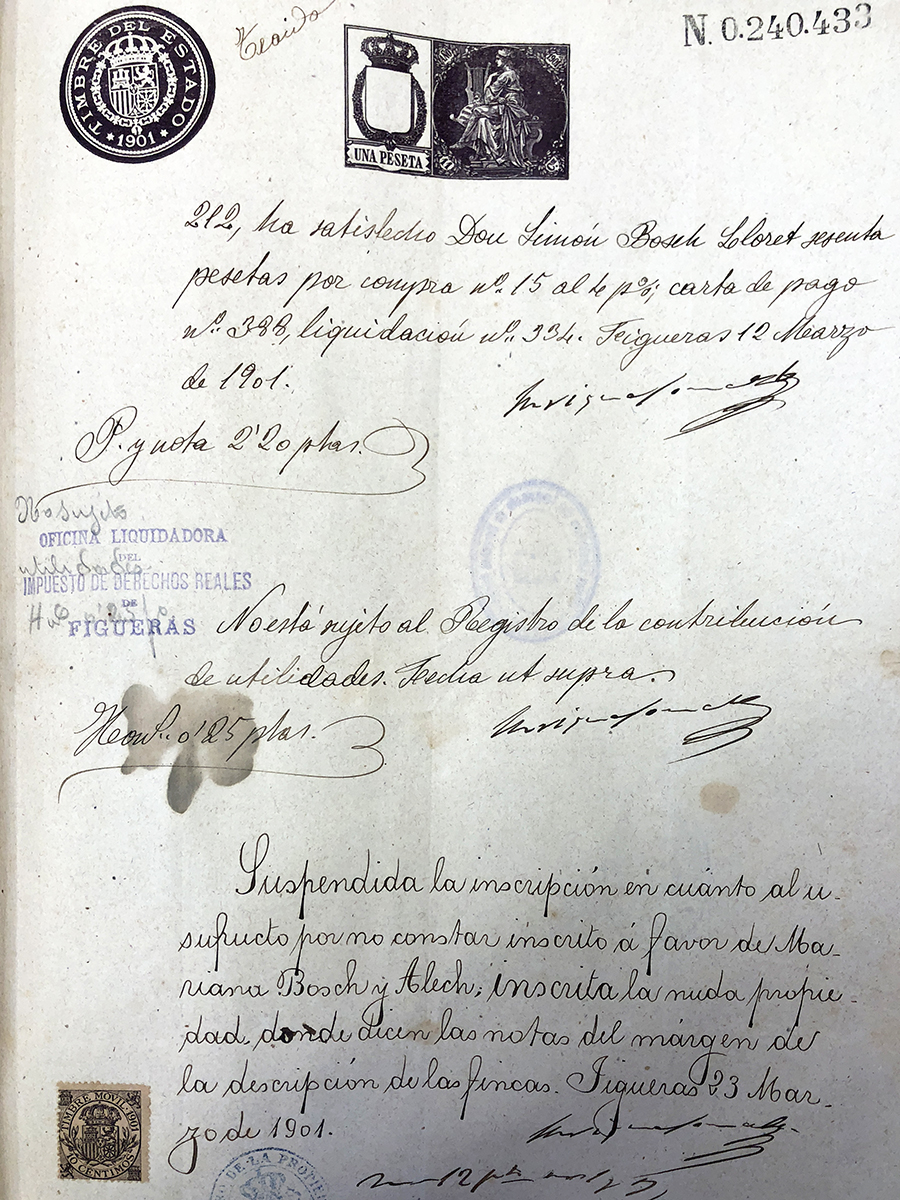 TIMBRE DEL ESTADO
* 1901 *
N. 0.240.433
UNA PESETA
212, ha satisfecho Don Simón Bosch Lloret sesenta
pesetas por compra nº. 15 al 4 p%; carta de pago
nº. 388, liquidación nº. 334. Figueras 12 Marzo
de 1901.
P. y nota 2'20 ptas.
No sujeto
OFICINA LIQUIDADORA
DEL
utilidades
IMPUESTO DE DERECHOS REALES
DE
FIGUERAS
No está sujeto al Registro de la contribución
de utilidades. Fecha ut supra.
Hon. 0'25 ptas.
Suspendida la inscripción en cuánto al u-
sufructo por no constar inscrito á favor de Ma-
riana Bosch y Alech; inscrita la nuda propie-
dad donde dicen las notas del márgen de
la descripción de las fincas. Figueras 23 Mar-
zo de 1901.
TIMBRE MOVIL 1901
10 CENTIMOS
DE LA PROPIE